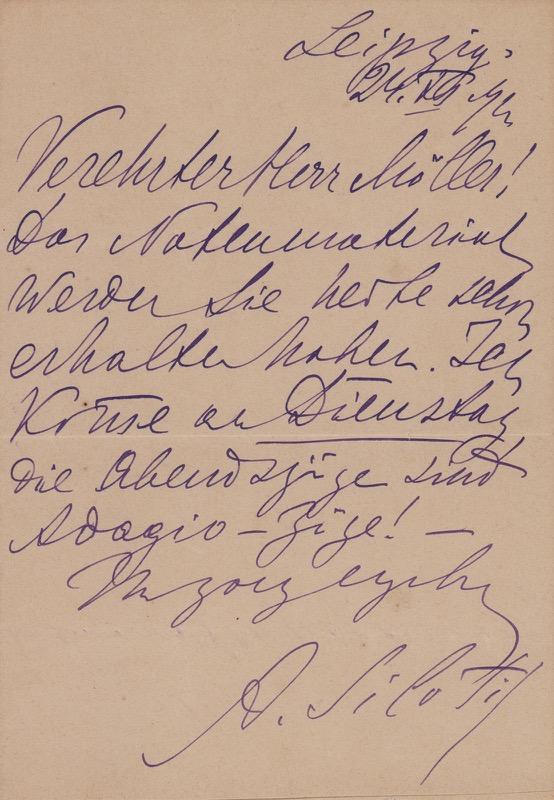 Leipzig.
24. XII.
Verehrter Herr Möller!
Das Notenmaterial
werden Sie heute schon
erhalten haben. Ich
komme am Dienstag
die Abendzüge sind
Adagio-Züge! —
Ihr ganz ergebener
A. Siloti